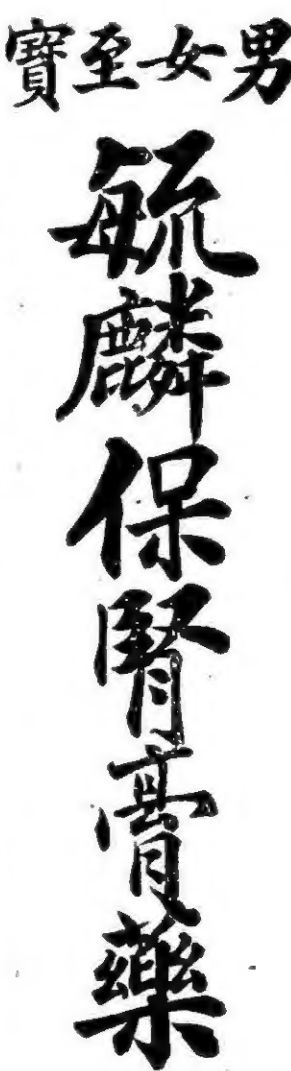 男女至寶
毓麟保腎膏藥